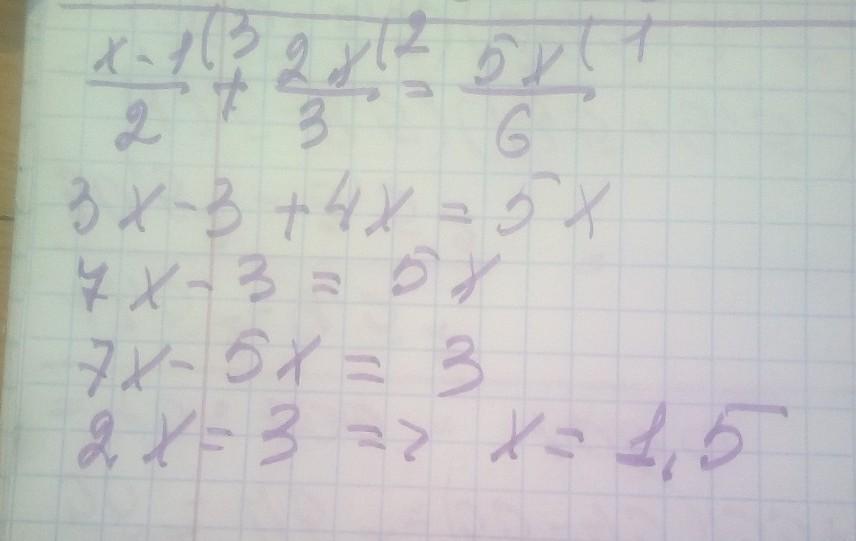 x-1(3 / 2 + 2x(2 / 3 = 5x(1 / 6
3x-3+4x=5x
7x-3=5x
7x-5x=3
2x=3 => x=1,5